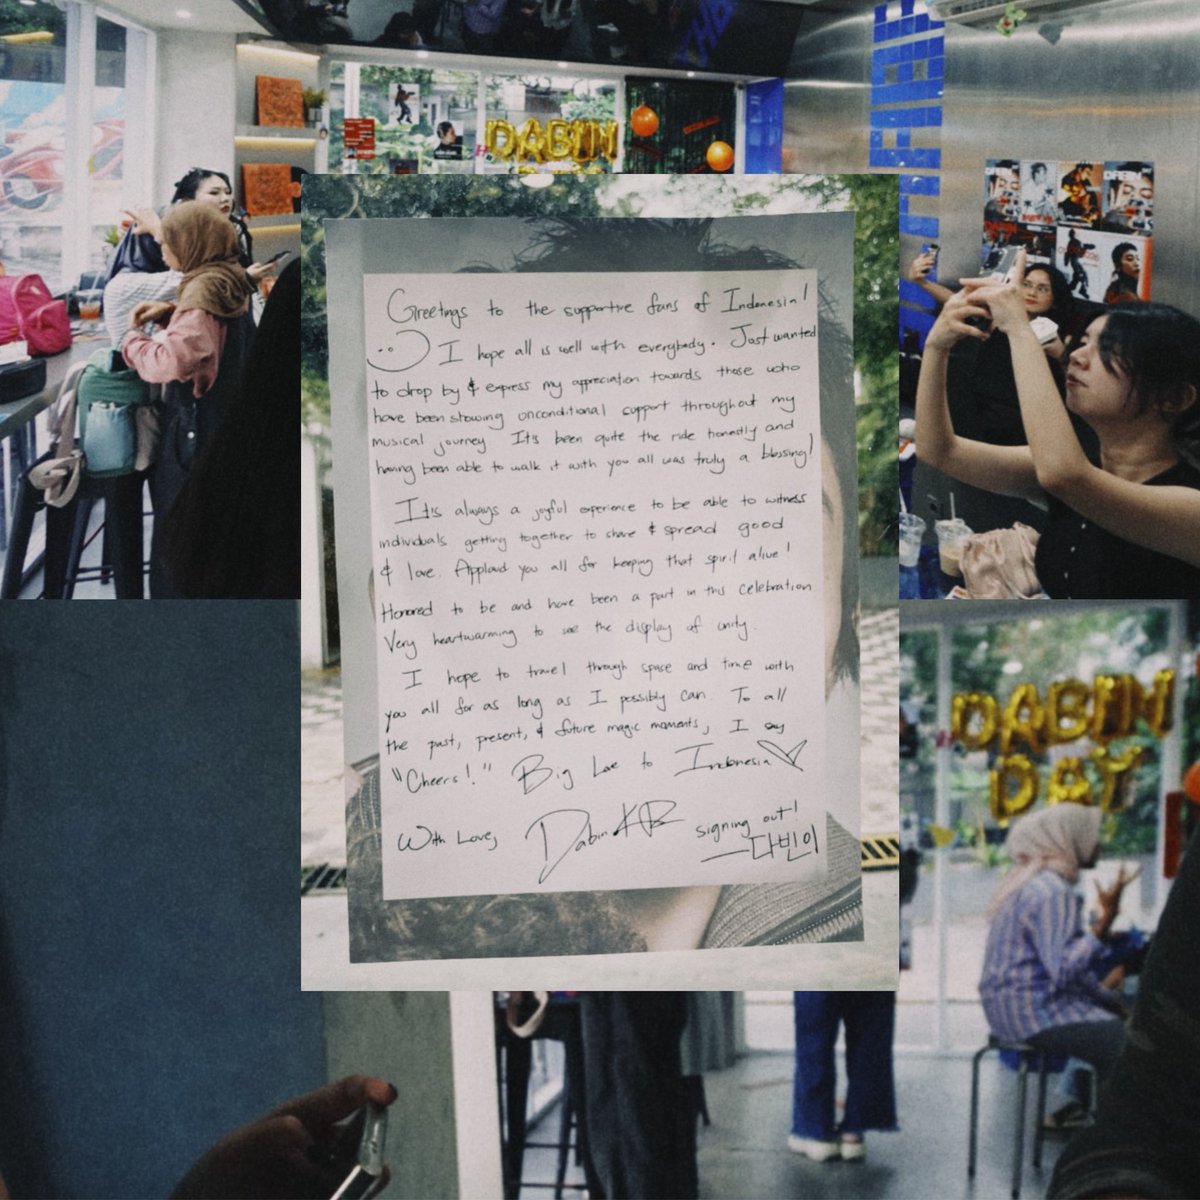 DABIN
Greetings to the supportive fans of Indonesia!
I hope all is well with everybody. Just wanted
to drop by & express my appreciation towards those who
have been showing unconditional support throughout my
musical journey. It's been quite the ride honestly and
having been able to walk it with you all was truly a blessing!
It is always a joyful experience to be able to witness
individuals getting together to share & spread good
& love. Applaud you all for keeping that spirit alive!
Honored to be and have been a part in this celebration
Very heartwarming to see the display of unity.
I hope to travel through space and time with
you all for as long as I possibly can. To all
the past, present, & future magic moments, I say
"Cheers!" Big Love to Indonesia
With Love, Dabin signing out!
다빈이
DABIN
DAY